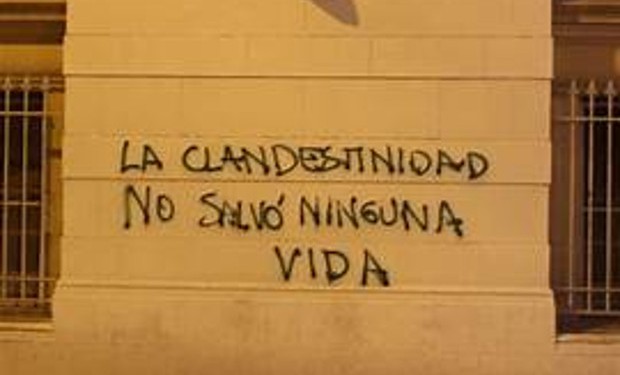 LA CLANDESTINIDAD
NO SALVÓ NINGUNA
VIDA